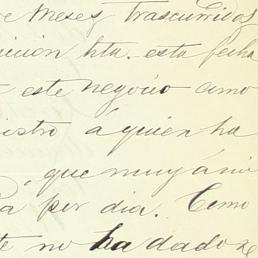 e meses trascurridos
icion hta. esta fecha
este negocio como
istro á quien ha
que muy á mi
a por dia. Como
te no ha dado